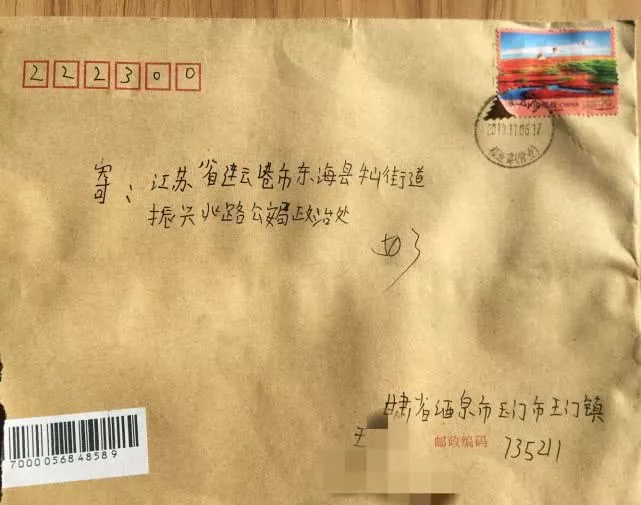 222300
中国邮政 CHINA
2019.11.06.17
寄：江苏省连云港市东海县牛山街道
振兴北路公安局政治处
甘肃省酒泉市玉门市玉门镇
王
邮政编码 735211
7000056848589